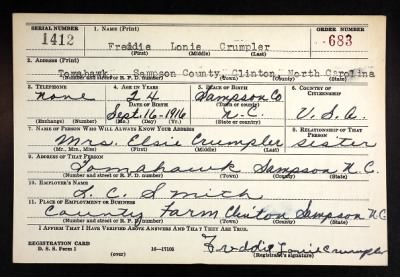 SERIAL NUMBER
1. NAME (Print)
ORDER NUMBER
1412
Freddie Lonie Crumpler
683
(First) (Middle) (Last)
2. ADDRESS (Print)
Tomahawk Sampson County, Clinton, North Carolina
(Number and street or R. F. D. number) (Town) (County) (State)
3. TELEPHONE
4. AGE IN YEARS
5. PLACE OF BIRTH
6. COUNTRY OF CITIZENSHIP
none
24
Sampson Co
DATE OF BIRTH
(Town or county)
Sept. 16-1916
N.C.
U.S.A.
(Exchange) (Number)
(Mo.) (Day) (Yr.)
(State or country)
7. NAME OF PERSON WHO WILL ALWAYS KNOW YOUR ADDRESS
8. RELATIONSHIP OF THAT PERSON
Mrs. Elsie Crumpler sister
(Mr., Mrs., Miss) (First) (Middle) (Last)
9. ADDRESS OF THAT PERSON
Tomahawk Sampson N.C.
(Number and street or R. F. D. number) (Town) (County) (State)
10. EMPLOYER'S NAME
L. C. Smith
11. PLACE OF EMPLOYMENT OR BUSINESS
County Farm Clinton Sampson N.C
(Number and street or R. F. D. number) (Town) (County) (State)
I AFFIRM THAT I HAVE VERIFIED ABOVE ANSWERS AND THAT THEY ARE TRUE.
REGISTRATION CARD
D. S. S. Form 1
16-17105
Freddie Lonie Crumpler
(over)
(Registrant's signature)